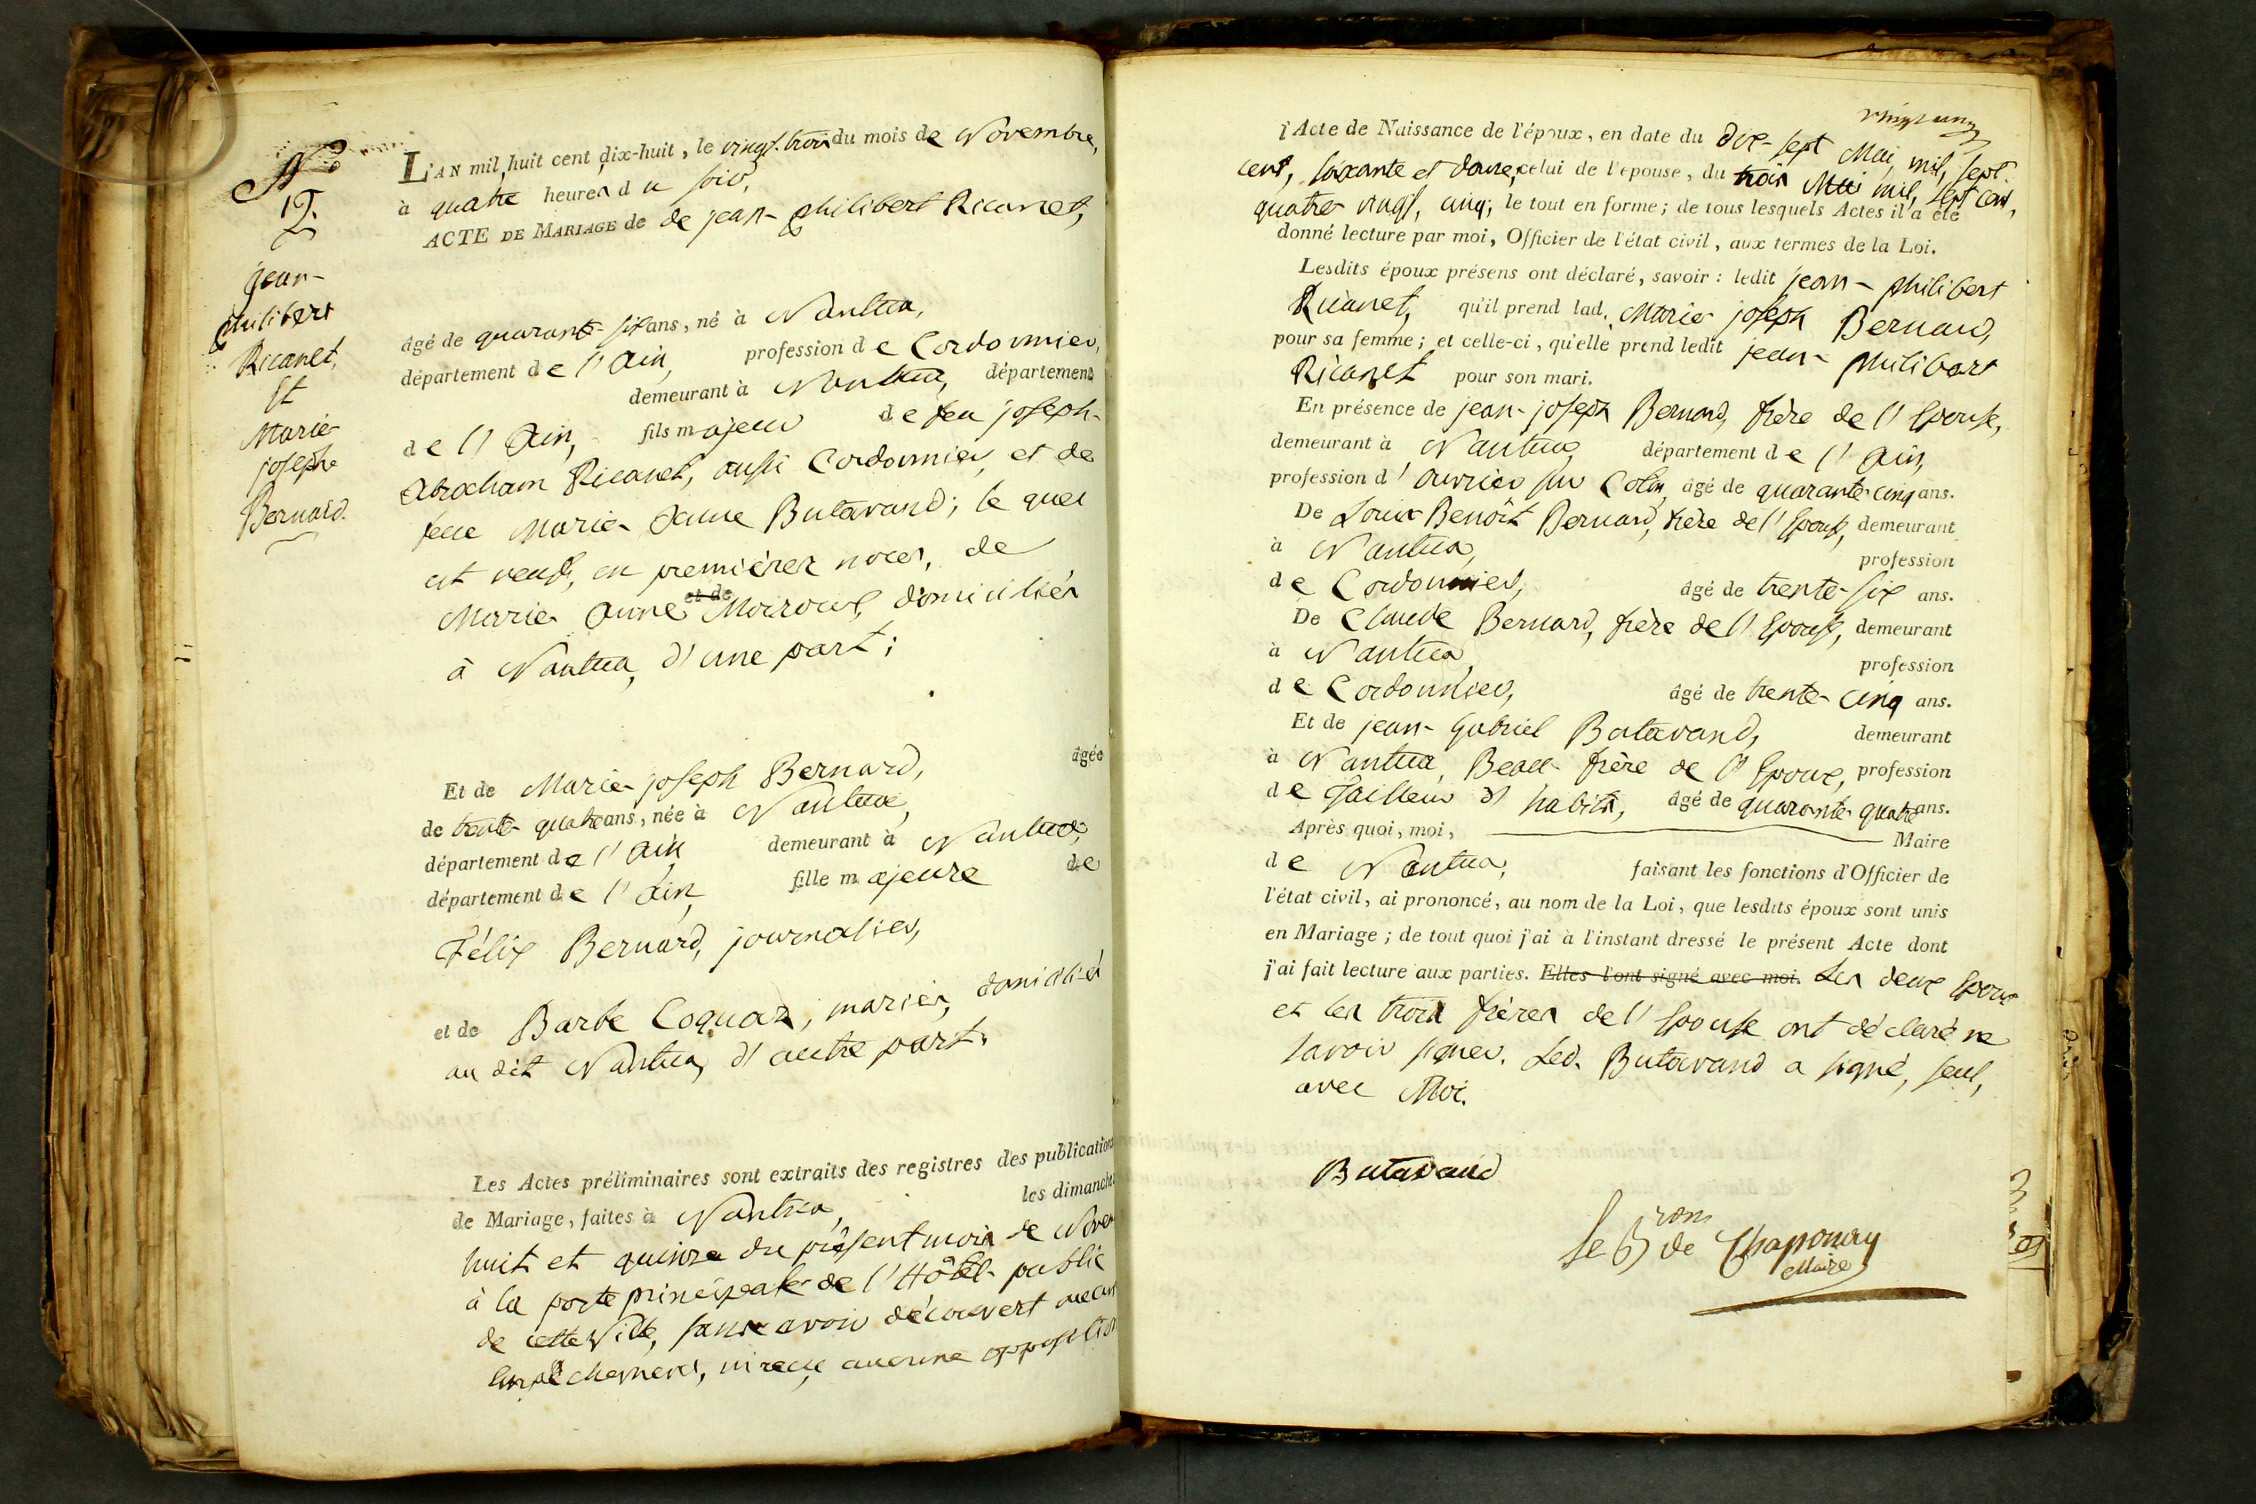 N.o
12.
jean-
philibert
Ricanet,
Et
Marie
joseph
Bernard.
L'AN mil huit cent dix-huit, le vingt-trois du mois de Novembre,
à quatre heures du soir,
ACTE DE MARIAGE de de jean-philibert Ricanet,
âgé de quarante-six ans, né à Nantua,
département de l'Ain, profession de Cordonnier,
demeurant à Nantua, département
de l'Ain, fils majeur de feu joseph-
Abraham Ricanet, aussi Cordonnier, et de
feue Marie-Anne Butavand; le quel
est veuf, en premières noces, de
Marie Anne et de domiciliés
à Nantua, d'une part;
Et de Marie-joseph Bernard, âgée
de trente-quatre ans, née à Nantua,
département de l'Ain demeurant à Nantua,
département de l'Ain, fille majeure de
Félix Bernard, journalier,
et de Barbe Coquaz, mariés, domiciliés
au dit Nantua, d'autre part.
Les Actes préliminaires sont extraits des registres des publications
de Mariage, faites à Nantua, les dimanches
huit et quinze du présent mois de Novem
à la porte principale de l'Hôtel public
de cette Ville, sans avoir découvert aucun
Empêchement, ni reçu aucune opposition
vingt un
l'Acte de Naissance de l'époux, en date du dix-sept Mai, mil, sept
cent, soixante et douze, celui de l'epouse, du trois mil, sept cent,
quatre vingt, cinq; le tout en forme; de tous lesquels Actes il a été
donné lecture par moi, Officier de l'état civil, aux termes de la Loi.
Lesdits époux présens ont déclaré, savoir : ledit jean-philibert
Ricanet, qu'il prend lad. Marie joseph Bernard,
pour sa femme; et celle-ci, qu'elle prend ledit jean-philibert
Ricanet pour son mari.
En présence de jean-joseph Bernard, frère de l'Epouse,
demeurant à Nantua, département de l'Ain,
profession d'ouvrier sur Coton, âgé de quarante-cinq ans.
De Louis Benoît Bernard, frère de l'Epouse, demeurant
à Nantua, profession
de Cordonnier, âgé de trente-six ans.
De Claude Bernard, frère de l'Epouse, demeurant
à Nantua, profession
de Cordonnier, âgé de trente-cinq ans.
Et de jean-Gabriel Butavand, demeurant
à Nantua, Beau-frère de l'Epoux, profession
de Tailleur d'habits, âgé de quarante-quatre ans.
Après quoi, moi, Maire
de Nantua, faisant les fonctions d'Officier de
l'état civil, ai prononcé, au nom de la Loi, que lesdits époux sont unis
en Mariage; de tout quoi j'ai à l'instant dressé le présent Acte dont
j'ai fait lecture aux parties. Elles l'ont signé avec moi. Les deux Epoux
et les trois frères de l'Epouse ont déclaré ne
savoir signer. Led. Butavand a signé, seul,
avec Moi.
Butavand
Le Bron de Chaponay
Maire